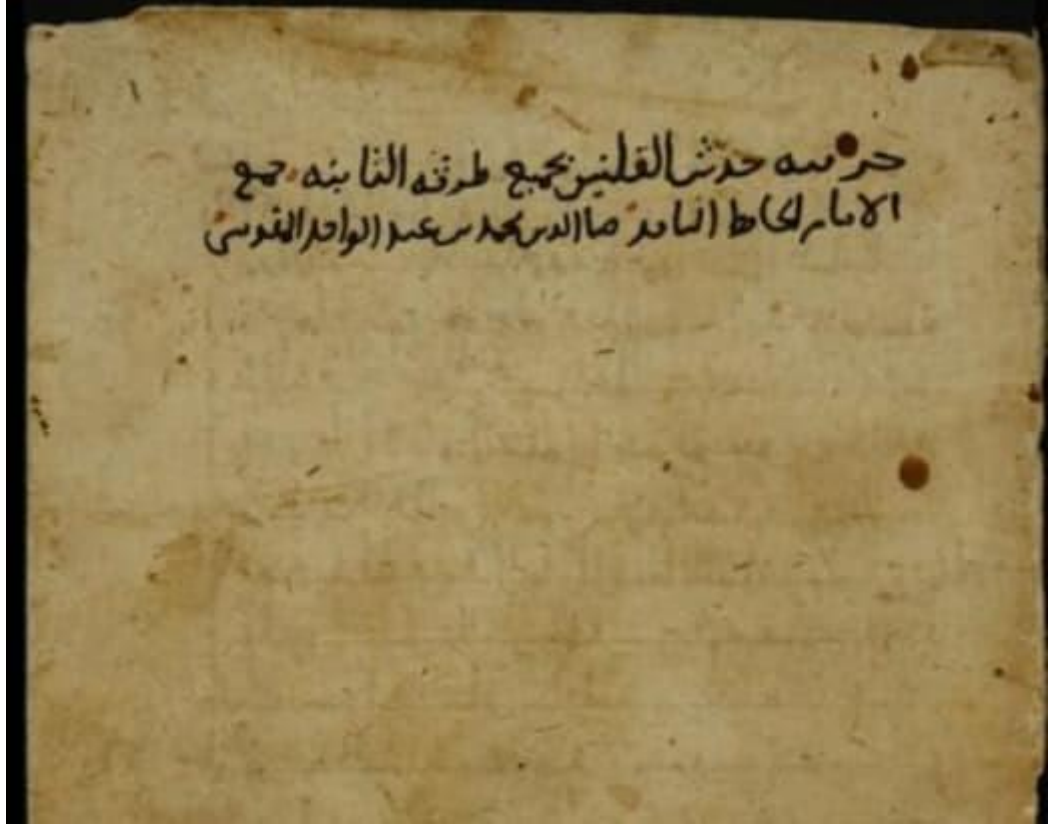 جزء فيه حديث القلتين بجميع طرقه الثابتة جمع
الامام الحافظ الناقد ضيا الدين محمد بن عبد الواحد المقدسي